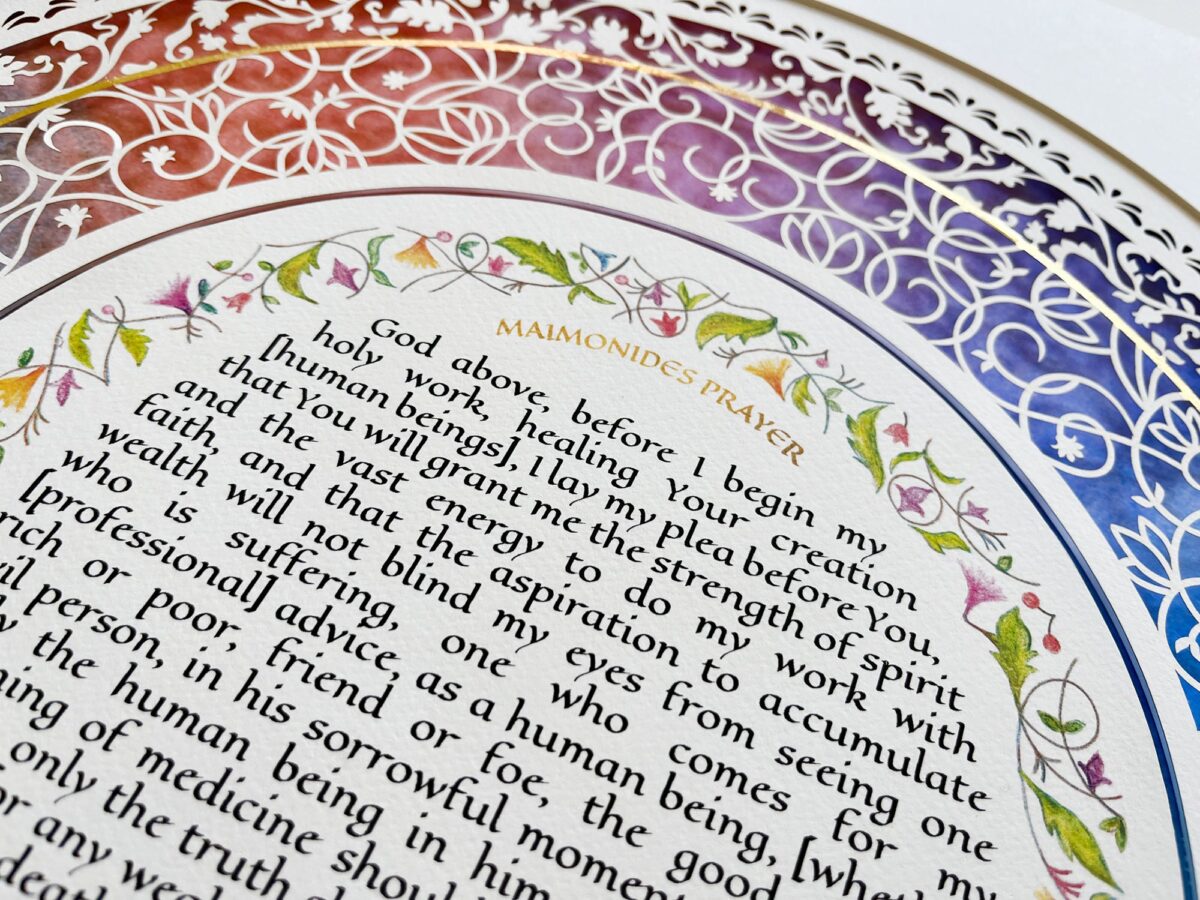 MAIMONIDES PRAYER
God above, before I begin my
holy work, healing Your creation
[human beings], I lay my plea before You,
that You will grant me the strength of spirit
and the vast energy to do my work with
faith, and that the aspiration to accumulate
wealth will not blind my eyes from seeing one
who is suffering, one who comes for my
[professional] advice, as a human being,
rich or poor, friend or foe, the good
person, in his sorrowful
the human being in
of medicine
only the truth
any